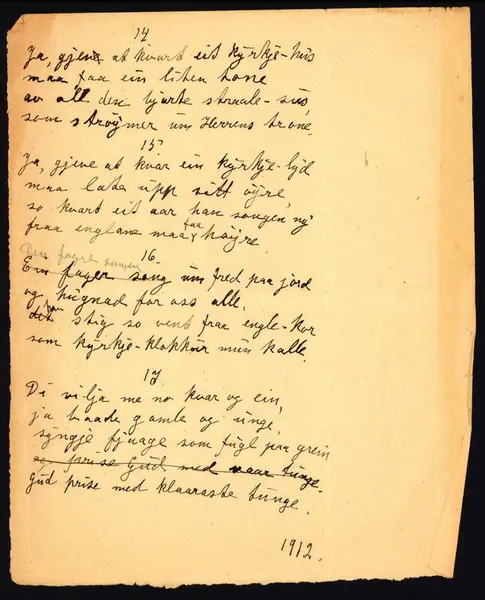 14
Ja, gjeve at kvart eit kyrkje-hus
maa faa ein liten tone
av all den bjarte straale-sus,
som strøymer um Herrens trone.
15
Ja, gjeve at kvar ein kyrkje-lyd
maa lata upp sitt øyre,
so kvart eit aar han songen ny
fraa englane maa faa høyre.
Den fagre songen
16.
Ein fager song um fred paa jord
og hugnad for oss alle.
stig so vent fraa engle-kor
som kyrkje-klokkur mun kalle.
17
Di vilja me no kvar og ein,
ja baade gamle og unge,
syngje fjuage som fugl paa grein
og prise Gud med vaar tunge.
Gud prise med klaaraste tunge.
1912.